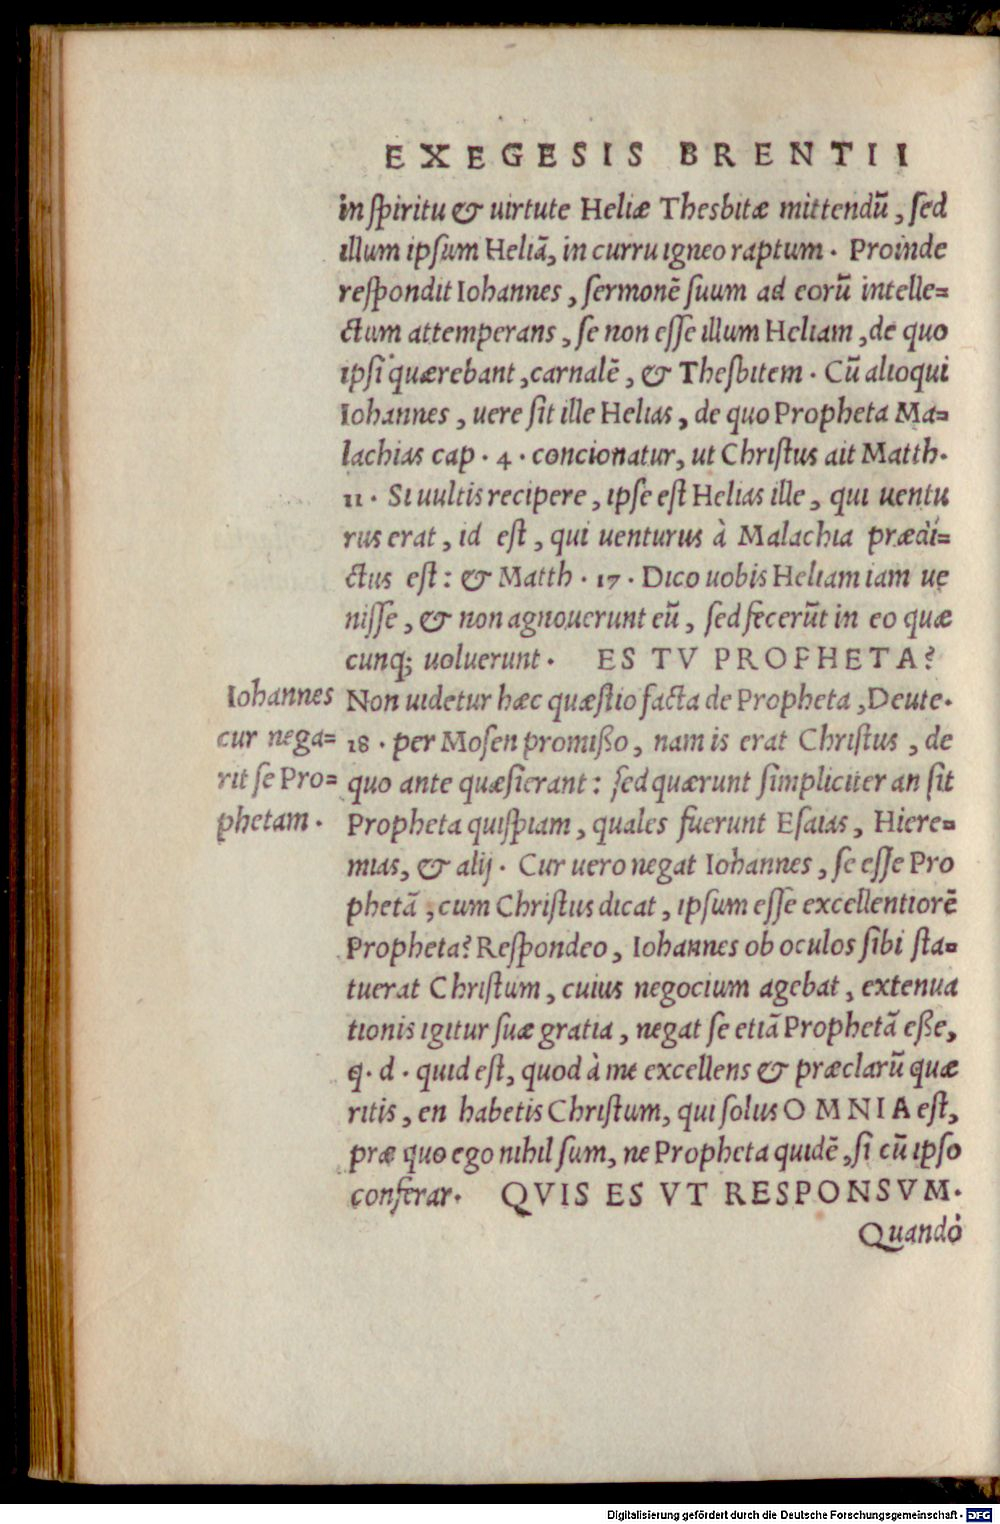 EXEGESIS BRENTII
in ſpiritu & uirtute Heliæ Thesbitæ mittendū, ſed
illum ipſum Heliā, in curru igneo raptum. Proinde
reſpondit Iohannes, ſermonē ſuum ad eorū intelle=
ctum attemperans, ſe non eſſe illum Heliam, de quo
ipſi quærebant, carnalē, & Theſbitem. Cū alioqui
Iohannes, uere ſit ille Helias, de quo Propheta Ma=
lachias cap. 4. concionatur, ut Chriſtus ait Matth.
11. Si uultis recipere, ipſe eſt Helias ille, qui uentu
rus erat, id eſt, qui uenturus à Malachia prædi=
ctus eſt: & Matth. 17. Dico uobis Heliam iam ue
niſſe, & non agnouerunt eū, ſed fecerūt in eo quæ
cunq; uoluerunt. ES TV PROPHETA?
Iohannes
cur nega=
rit ſe Pro=
phetam.
Non uidetur hæc quæſtio facta de Propheta, Deute.
18. per Moſen promiſſo, nam is erat Chriſtus, de
quo ante quæſierant: ſed quærunt ſimpliciter an ſit
Propheta quiſpiam, quales fuerunt Eſaias, Hiere=
mias, & alij. Cur uero negat Iohannes, ſe eſſe Pro
phetā, cum Chriſtus dicat, ipſum eſſe excellentiorē
Propheta? Reſpondeo, Iohannes ob oculos ſibi ſta=
tuerat Chriſtum, cuius negocium agebat, extenua
tionis igitur ſuæ gratia, negat ſe etiā Prophetā eße,
q. d. quid eſt, quod à me excellens & præclarū quæ
ritis, en habetis Chriſtum, qui ſolus OMNIA eſt,
præ quo ego nihil ſum, ne Propheta quidē, ſi cū ipſo
conferar. QVIS ES VT RESPONSVM.
Quando
Digitalisierung gefördert durch die Deutsche Forschungsgemeinschaft - DFG